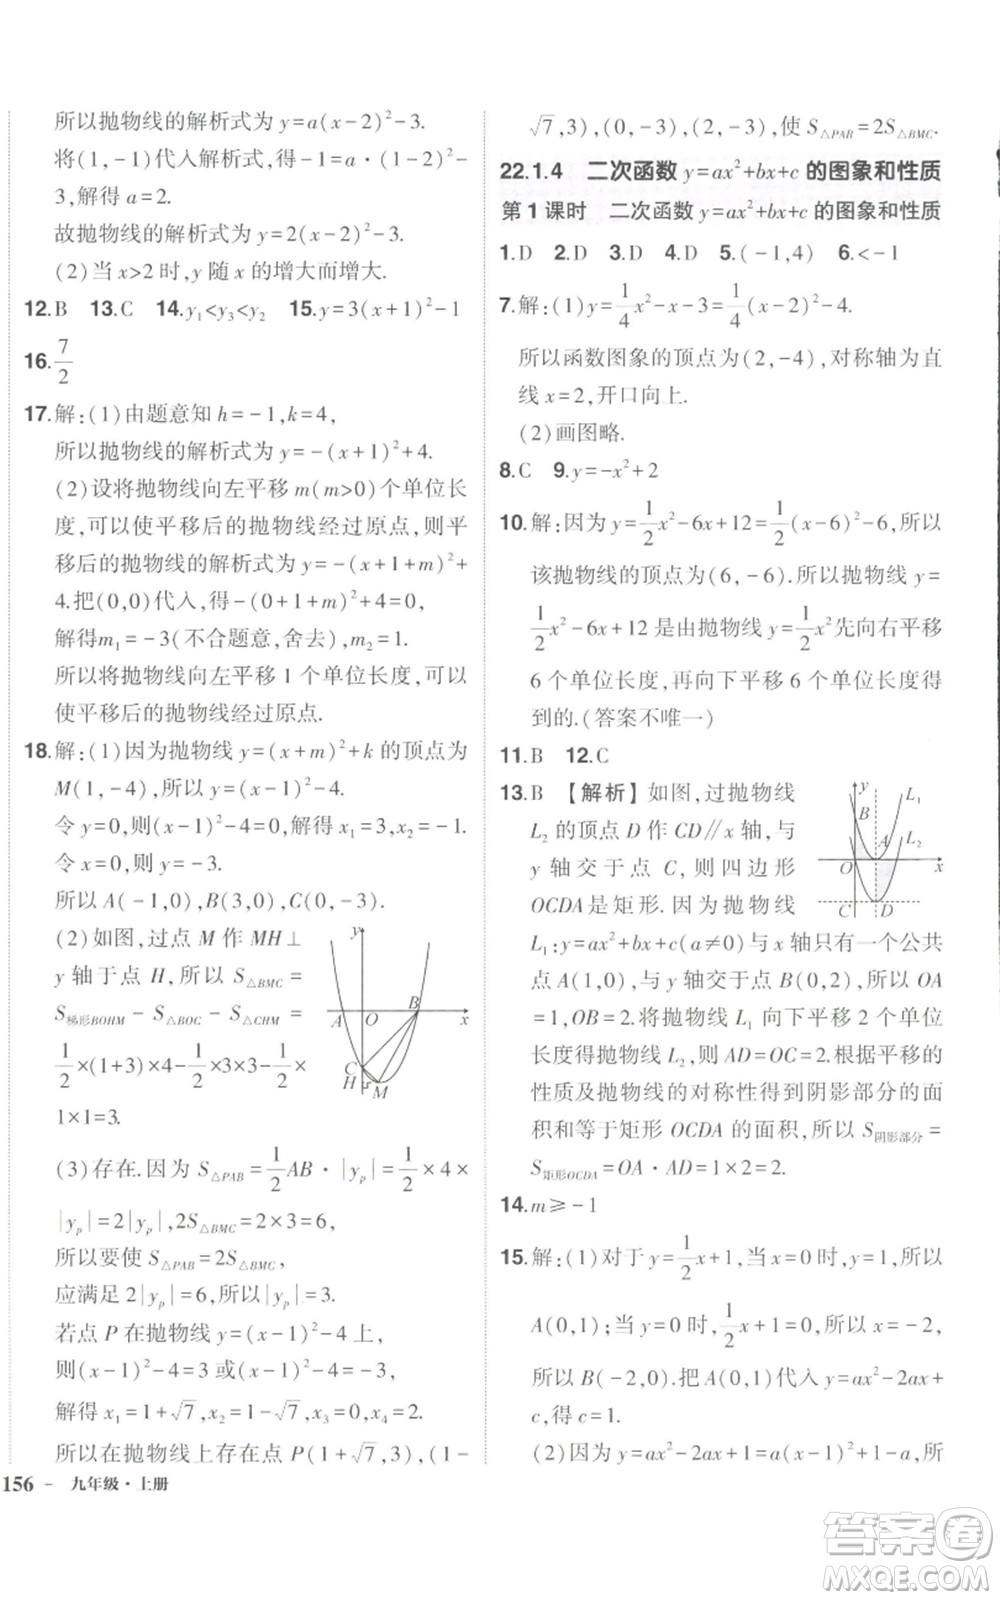 所以抛物线的解析式为 y=a(x-2)²-3.
将(1,-1)代入解析式,得-1=a·(1-2)²-
3,解得 a=2.
故抛物线的解析式为 y=2(x-2)²-3.
(2)当 x>2 时,y 随 x 的增大而增大.
12.B 13.C 14.y₁<y₃<y₂ 15.y=3(x+1)²-1
16.7/2
17.解:(1)由题意知 h=-1,k=4,
所以抛物线的解析式为 y=-(x+1)²+4.
(2)设将抛物线向左平移 m(m>0)个单位长
度,可以使平移后的抛物线经过原点,则平
移后的抛物线的解析式为 y=-(x+1+m)²+
4.把(0,0)代入,得-(0+1+m)²+4=0,
解得m₁=-3(不合题意,舍去),m₂=1.
所以将抛物线向左平移 1 个单位长度,可以
使平移后的抛物线经过原点.
18.解:(1)因为抛物线 y=(x+m)²+k 的顶点为
M(1,-4),所以 y=(x-1)²-4.
令 y=0,则(x-1)²-4=0.解得 x₁=3,x₂=-1.
令 x=0,则 y=-3.
所以 A(-1,0),B(3,0),C(0,-3).
(2)如图,过点 M 作 MH⊥
y 轴于点 H,所以 S△BMC=
S梯形BOHM-S△BOC-S△CHM=
1/2×(1+3)×4-1/2×3×3-1/2×
1×1=3.
y
A O B x
C
H M
(3)存在.因为 S△PAB=1/2AB·|yₚ|=1/2×4×
|yₚ|=2|yₚ|,2S△BMC=2×3=6,
所以要使 S△PAB=2S△BMC,
应满足 2|yₚ|=6,所以|yₚ|=3.
若点 P 在抛物线 y=(x-1)²-4 上,
则(x-1)²-4=3 或(x-1)²-4=-3,
解得 x₁=1+√7,x₂=1-√7,x₃=0,x₄=2.
所以在抛物线上存在点 P(1+√7,3),(1-
156 - 九年级·上册
√7,3),(0,-3),(2,-3),使 S△PAB=2S△BMC.
22.1.4 二次函数 y=ax²+bx+c 的图象和性质
第 1 课时 二次函数 y=ax²+bx+c 的图象和性质
1.D 2.D 3.D 4.D 5.(-1,4) 6.<-1
7.解:(1)y=1/4x²-x-3=1/4(x-2)²-4.
所以函数图象的顶点为(2,-4),对称轴为直
线 x=2,开口向上.
(2)画图略.
8.C 9.y=-x²+2
10.解:因为 y=1/2x²-6x+12=1/2(x-6)²-6,所以
该抛物线的顶点为(6,-6).所以抛物线 y=
1/2x²-6x+12 是由抛物线 y=1/2x²先向右平移
6 个单位长度,再向下平移 6 个单位长度得
到的.(答案不唯一)
11.B 12.C
13.B 【解析】如图,过抛物线
L₂ 的顶点 D 作 CD∥x 轴,与
y 轴交于点 C,则四边形
OCDA是矩形.因为抛物线
y L₁
B L₂
A
O x
C D
L₁:y=ax²+bx+c(a≠0)与 x 轴只有一个公共
点 A(1,0),与 y 轴交于点 B(0,2),所以 OA
=1,OB=2.将抛物线 L₁ 向下平移 2 个单位
长度得抛物线 L₂,则 AD=OC=2.根据平移的
性质及抛物线的对称性得到阴影部分的面
积和等于矩形 OCDA 的面积,所以 S阴影部分=
S矩形OCDA=OA·AD=1×2=2.
14.m≥-1
15.解:(1)对于 y=1/2x+1,当 x=0 时,y=1,所以
A(0,1);当 y=0 时,1/2x+1=0,所以 x=-2,
所以 B(-2,0).把 A(0,1)代入 y=ax²-2ax+
c,得 c=1.
(2)因为 y=ax²-2ax+1=a(x-1)²+1-a,所
答案卷
MXQE.COM